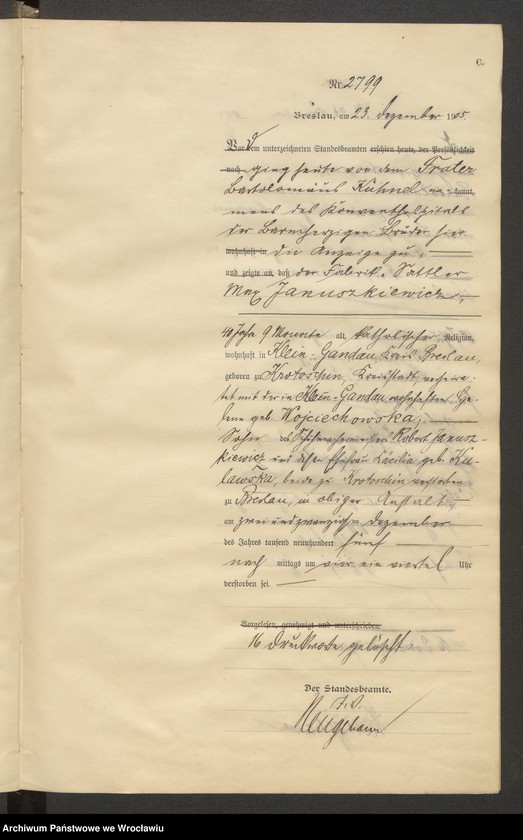 C.
Nr. 2799
Breslau, am 23. Dezember 1905.
Vor dem unterzeichneten Standesbeamten erschien heute, der Persönlichkeit
nach ging heute von dem Frater
Bartolomäus Kuhnel kannt,
mens des Konventhospitals
der Barmherzigen Brüder hier
wohnhaft in die Anzeige zu,
und zeigte an, daß der Fabrik-Sattler
Max Januszkiewicz,
40 Jahre 9 Monate alt, katholischer Religion,
wohnhaft in Klein-Gandau, Kreis Breslau,
geboren zu Krotoschin, Kreisstadt, verheira-
tet mit der in Klein-Gandau wohnhaften He-
lene geb. Wojciechowska,
Sohn des Robert Janusz-
kiewicz und dessen Ehefrau Cäcilia geb. Ku-
lawska, beide zu Krotoschin verstorben
zu Breslau, in obiger Anstalt,
am zweiundzwanzigsten Dezember
des Jahres tausend neunhundert fünf
nach mittags um vier ein viertel Uhr
verstorben sei.
Vorgelesen, genehmigt und unterschrieben
16 Druckworte gelöscht.
Der Standesbeamte.
I. V.
Archiwum Państwowe we Wrocławiu